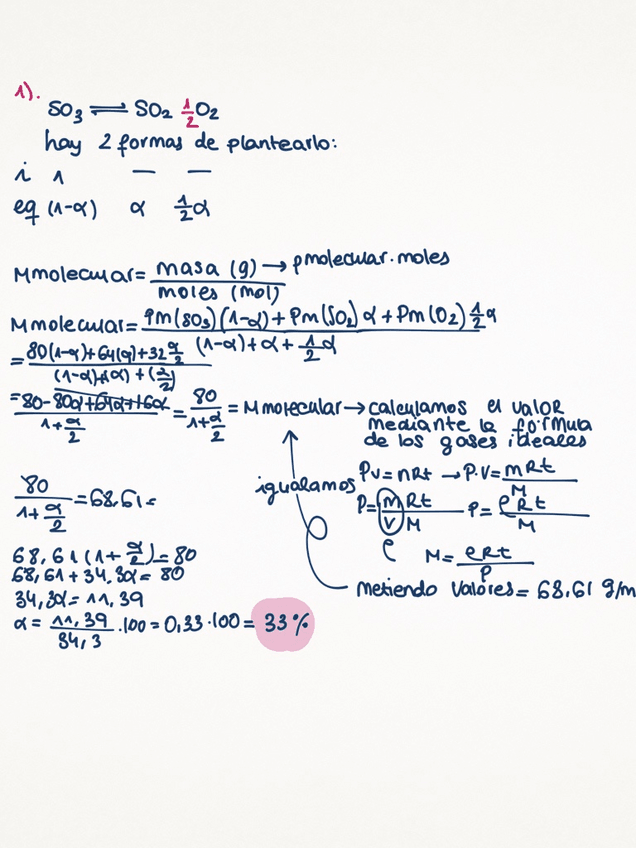 1).
SO3 ⇌ SO2 1/2 O2
hay 2 formas de plantearlo:
i 1 — —
eq (1-α) α 1/2α
Mmolecular= masa (g) / moles (mol) → pmolecular.moles
Mmolecular= Pm(SO3)(1-α)+Pm(SO2)α+Pm(O2)1/2α / (1-α)+α+1/2α
= 80(1-α)+64(α)+32α/2 / (1-α)+(α)+(α/2)
= 80-80α+64α+16α / 1+α/2 = 80 / 1+α/2 = Mmolecular → calculamos el valor
mediante la fórmula
de los gases ideales
igualamos
PV=nRt → P.V= mRt / M
P= mRt / V M P= ρRt / M
ρ M= ρRt / P
Metiendo valores= 68,61 g/m
80 / 1+α/2 =68,61=
68,61(1+α/2)=80
68,61+34,3α=80
34,3α=11,39
α= 11,39 / 34,3 .100=0,33.100= 33%